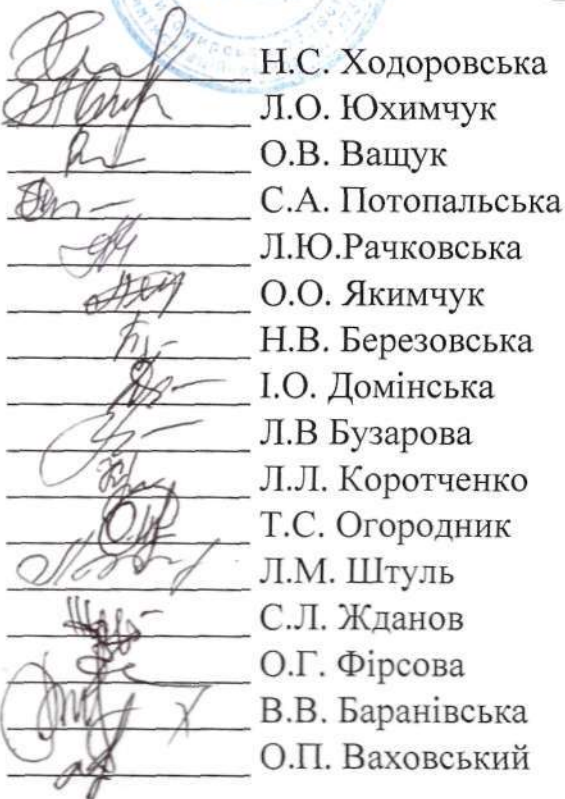 Н.С. Ходоровська
Л.О. Юхимчук
О.В. Ващук
С.А. Потопальська
Л.Ю.Рачковська
О.О. Якимчук
Н.В. Березовська
І.О. Домінська
Л.В Бузарова
Л.Л. Коротченко
Т.С. Огородник
Л.М. Штуль
С.Л. Жданов
О.Г. Фірсова
В.В. Баранівська
О.П. Ваховський